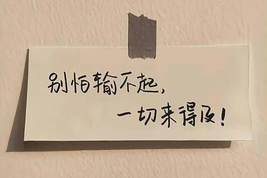 别怕输不起，
一切来得及！